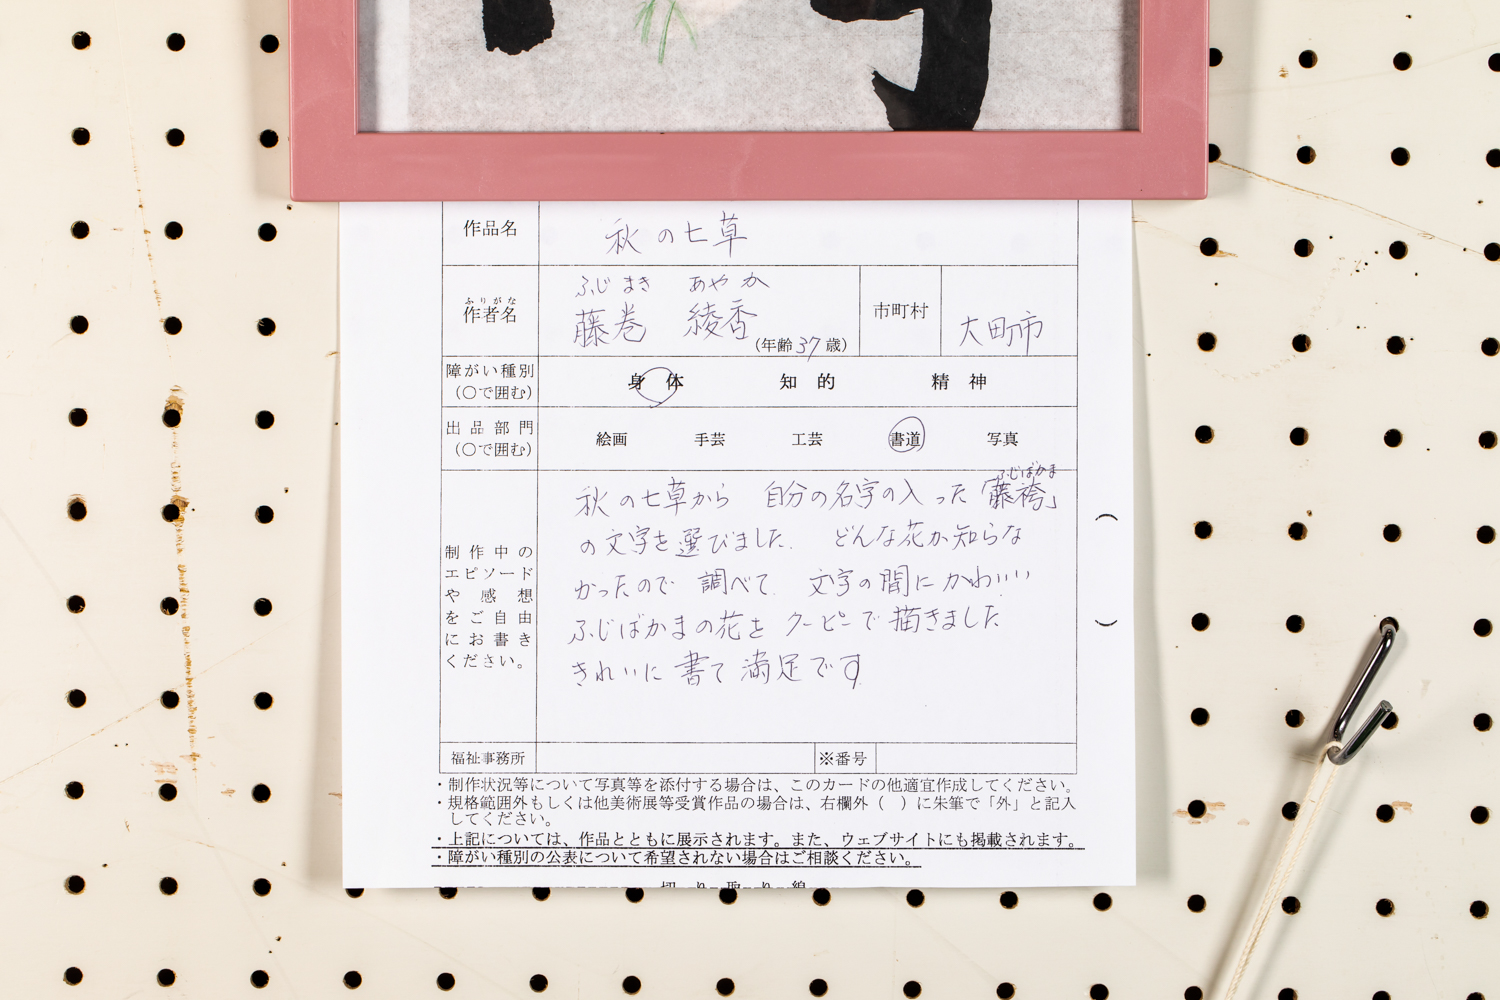 作品名 秋の七草
ふじまき あやか
ふりがな
作者名 藤巻 綾香 (年齢 37 歳) 市町村 大町市
障がい種別
(○で囲む) 身体 知的 精神
出品部門
(○で囲む) 絵画 手芸 工芸 書道 写真
ふじばかま
秋の七草から 自分の名字の入った「藤袴」
の文字を選びました. どんな花か知らな
かったので 調べて. 文字の間にかわいい
ふじばかまの花を クーピーで描きました
きれいに書て満足です
制作中の
エピソード
や感想
をご自由
にお書き
ください。
福祉事務所 ※番号
・制作状況等について写真等を添付する場合は、このカードの他適宜作成してください。
・規格範囲外もしくは他美術展等受賞作品の場合は、右欄外( )に朱筆で「外」と記入
してください。
・上記については、作品とともに展示されます。また、ウェブサイトにも掲載されます。
・障がい種別の公表について希望されない場合はご相談ください。
切り取り線